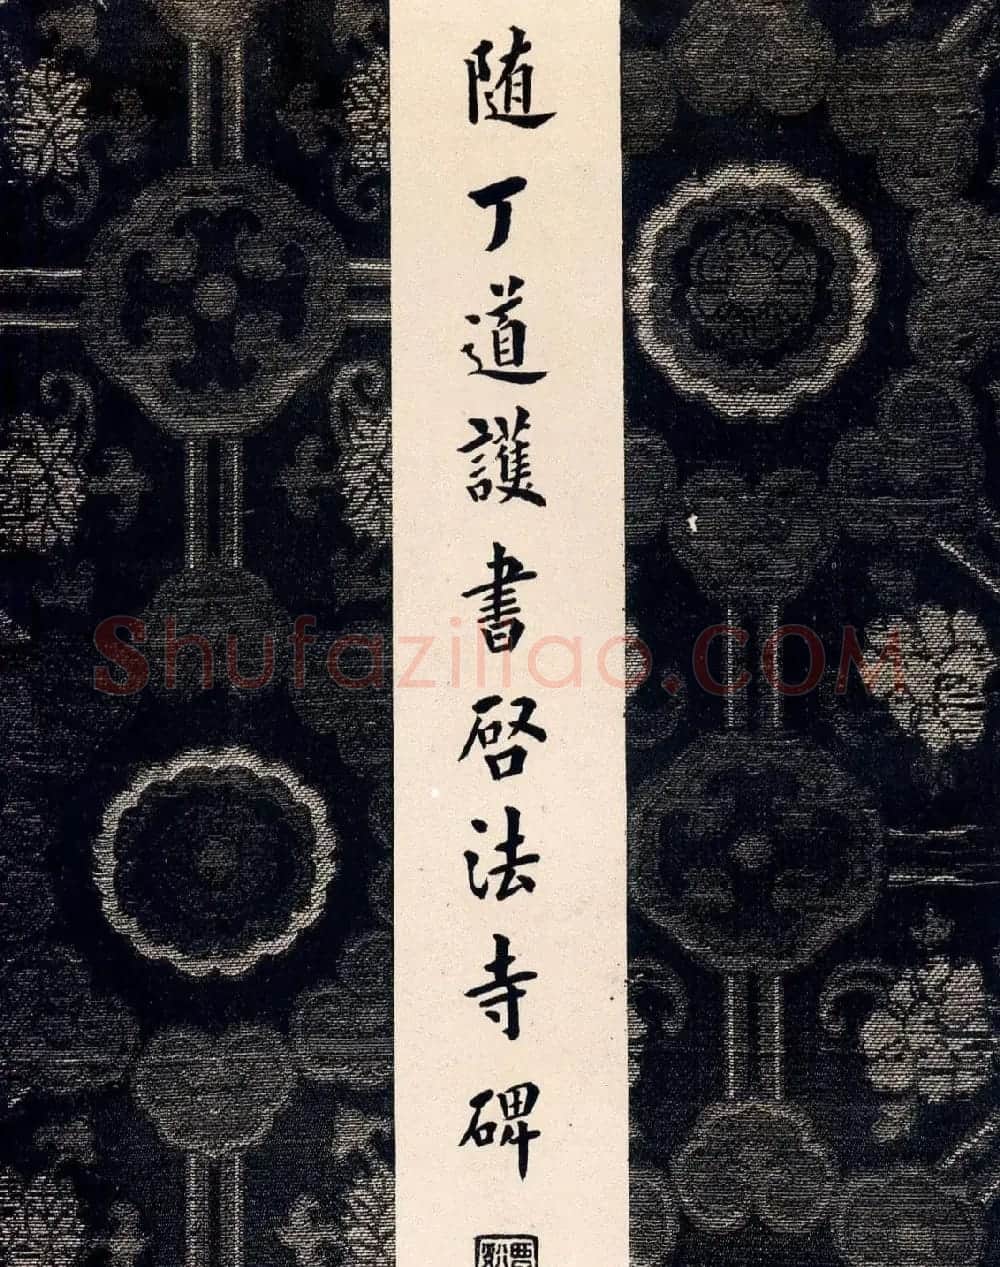 随丁道護書啓法寺碑
Shufaziliao.COM